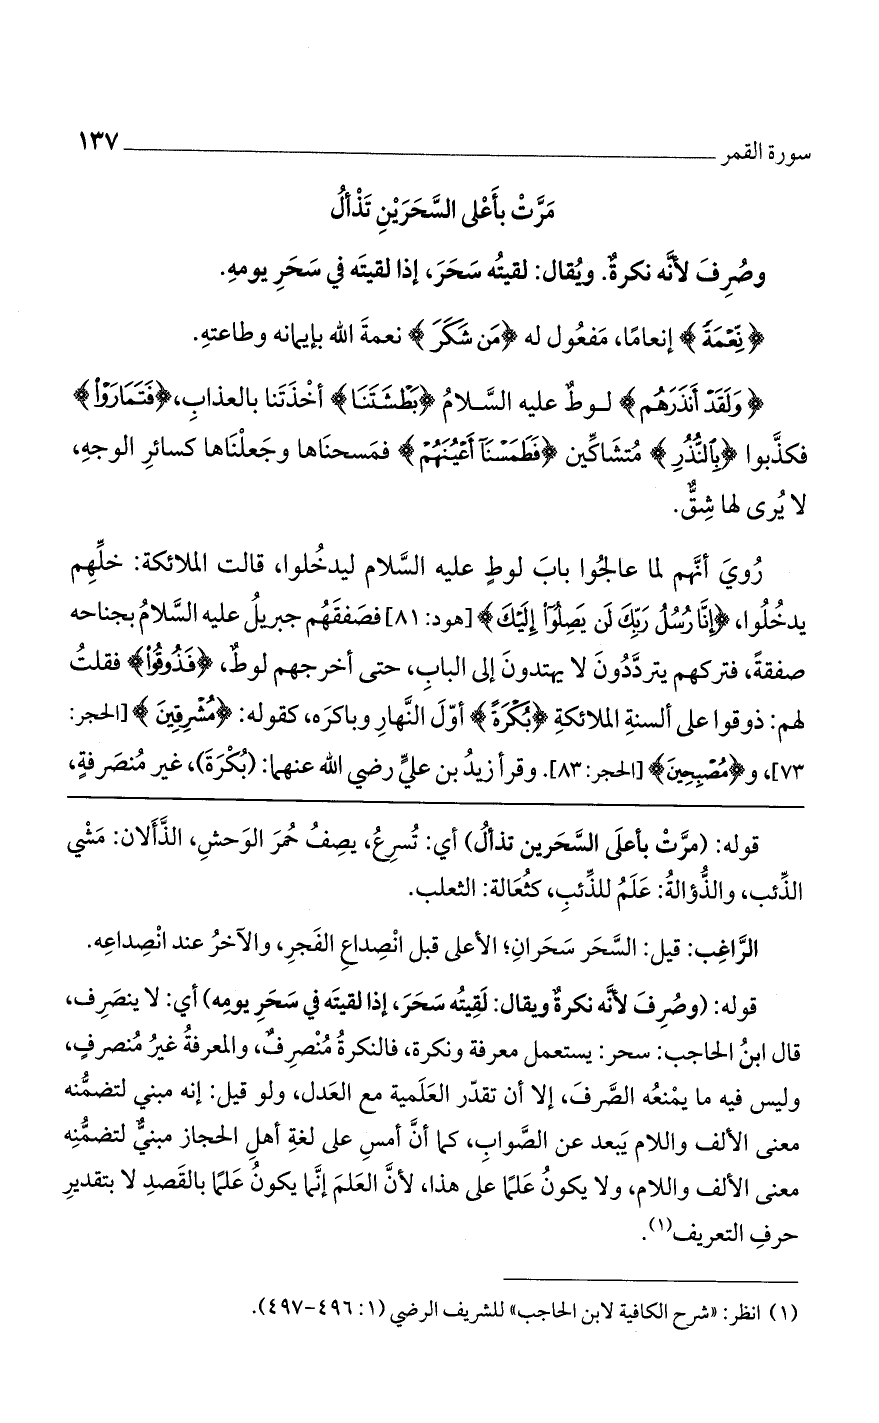 سورة القمر ١٣٧
مَرَّتْ بأَعْلى السَّحَرَيْنِ تَذْأَلُ
وصُرِفَ لأنَّه نكرةٌ. ويُقال: لقيتُه سَحَرَ، إذا لقيتَه في سَحَرِ يومِهِ.
﴿نِّعْمَةً﴾ إنعامًا، مَفعُول له ﴿مَن شَكَرَ﴾ نعمةَ الله بإيمانه وطاعتهِ.
﴿وَلَقَدْ أَنذَرَهُم﴾ لـوطٌ عليه السَّـلامُ ﴿بَطْشَتَنَا﴾ أخْذَتَنا بالعذابِ، ﴿فَتَمَارَوْا﴾
فكذَّبوا ﴿بِالنُّذُرِ﴾ مُتشاكِّين ﴿فَطَمَسْنَآ أَعْيُنَهُمْ﴾ فمَسحنَاها وجَعلْنَاها كسائرِ الوجهِ،
لا يُرى لها شِقٌّ.
رُويَ أنَّهم لما عالجُوا بابَ لوطٍ عليه السَّلام ليدخُلوا، قالت الملائكة: خلِّهم
يدخُلُوا، ﴿إِنَّا رُسُلُ رَبِّكَ لَن يَصِلُوٓا إِلَيْكَ﴾ [هود: ٨١] فصَفقَهُم جبريلُ عليه السَّلامُ بجناحه
صفقةً، فتركهم يتردَّدُونَ لا يهتدونَ إلى البابِ، حتى أخرجهم لوطٌ، ﴿فَذُوقُوا﴾ فقلتُ
لهم: ذوقوا على ألسنةِ الملائكةِ ﴿بُكْرَةً﴾ أوّلَ النَّهارِ وباكرَه، كقوله: ﴿مُشْرِقِينَ﴾ [الحجر:
٧٣]، و﴿مُصْبِحِينَ﴾ [الحجر: ٨٣]. وقرأ زيدُ بن عليٍّ رضي الله عنهما: (بُكْرَةَ)، غير مُنصَرفةٍ،
قوله: (مرَّتْ بأعلَى السَّحَرين تذألُ) أي: تُسرِعُ، يصِفُ حُمرَ الوَحشِ، الذَّأَلان: مَشْي
الذِّئب، والذُّؤالةُ: عَلَمُ للذِّئبِ، كثُعَالة: الثعلب.
الرَّاغِب: قيل: السَّحَر سَحَرانِ؛ الأعلى قبل انْصِداعِ الفَجرِ، والآخرُ عند انْصِداعِه.
قوله: (وصُرِفَ لأنَّه نكرةٌ ويقال: لَقِيتُه سَحَرَ، إذا لقيتَه في سَحَرِ يومِه) أي: لا ينصَرِف،
قال ابنُ الحاجب: سحر: يستعمل معرفة ونكرة، فالنكرةُ مُنْصرِفٌ، والمعرفةُ غيرُ مُنصرفٍ،
وليس فيه ما يمْنعُه الصَّرفَ، إلا أن تقدّر العَلَمية مع العَدل، ولو قيل: إنه مبني لتضمُّنه
معنى الألف واللام يَبعد عن الصَّوابِ، كما أنَّ أمسِ على لغةِ أهلِ الحجاز مبنيٌّ لتضمُّنِه
معنى الألف واللام، ولا يكونُ عَلمًا على هذا، لأنَّ العَلمَ إنَّما يكونُ عَلمًا بالقَصدِ لا بتقديرِ
حرفِ التعريف(١).
(١) انظر: «شرح الكافية لابن الحاجب» للشريف الرضي (١: ٤٩٦-٤٩٧).